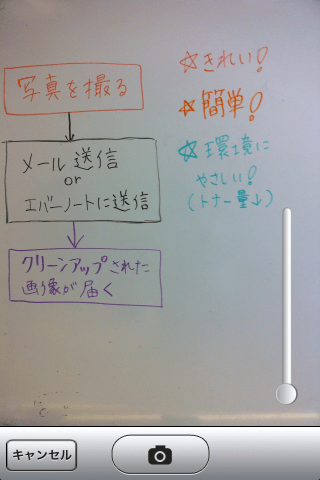 写真を撮る
メール送信
or
エバーノートに送信
クリーンアップされた
画像が届く
☆きれい!
☆簡単!
☆環境に
やさしい!
(トナー量↓)
キャンセル